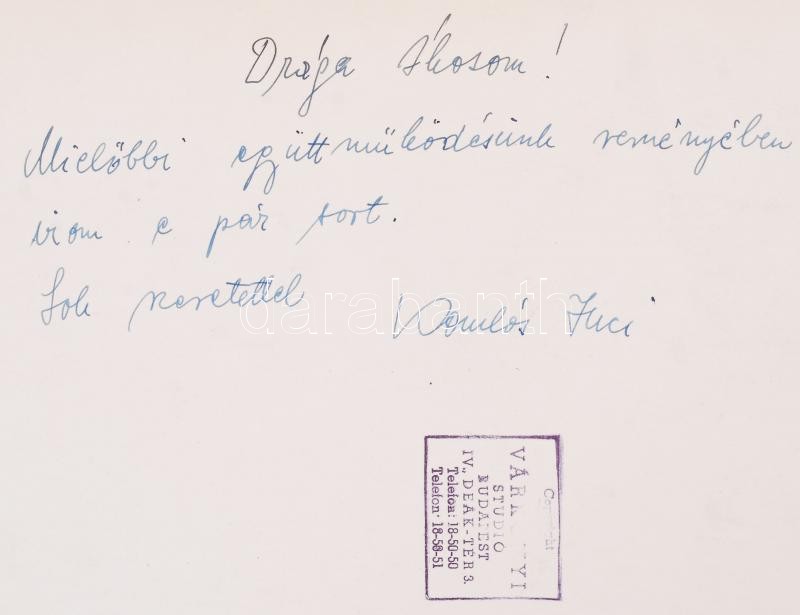 Drága Ákosom!
Mielőbbi együttműködésünk reményében
irom e pár sort.
Sok szeretettel
Komlós Juci
darabanth
Copyright
VÁRKONYI
STUDIÓ
BUDAPEST
IV., DEÁK-TÉR 3.
Telefon: 18-50-50
Telefon: 18-58-51